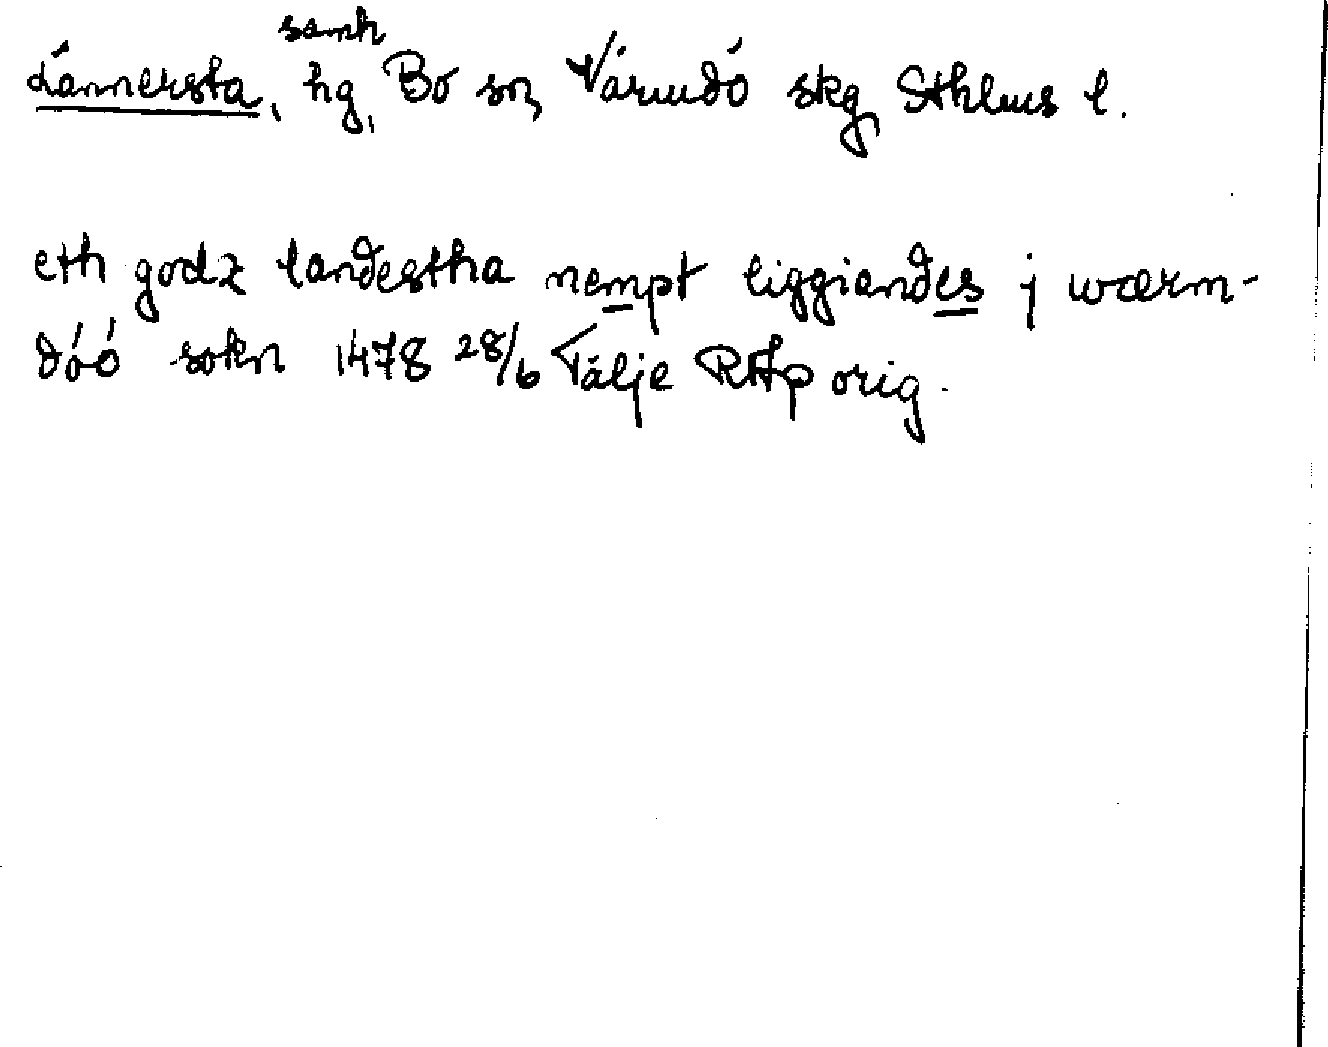 samh
Lännersta, hg, Bo sn, Värmdö skg Sthlms l.
eth godz landestha nempt liggiandes j wærm-
döö sokn 1478 28/6 Tälje RAp orig.